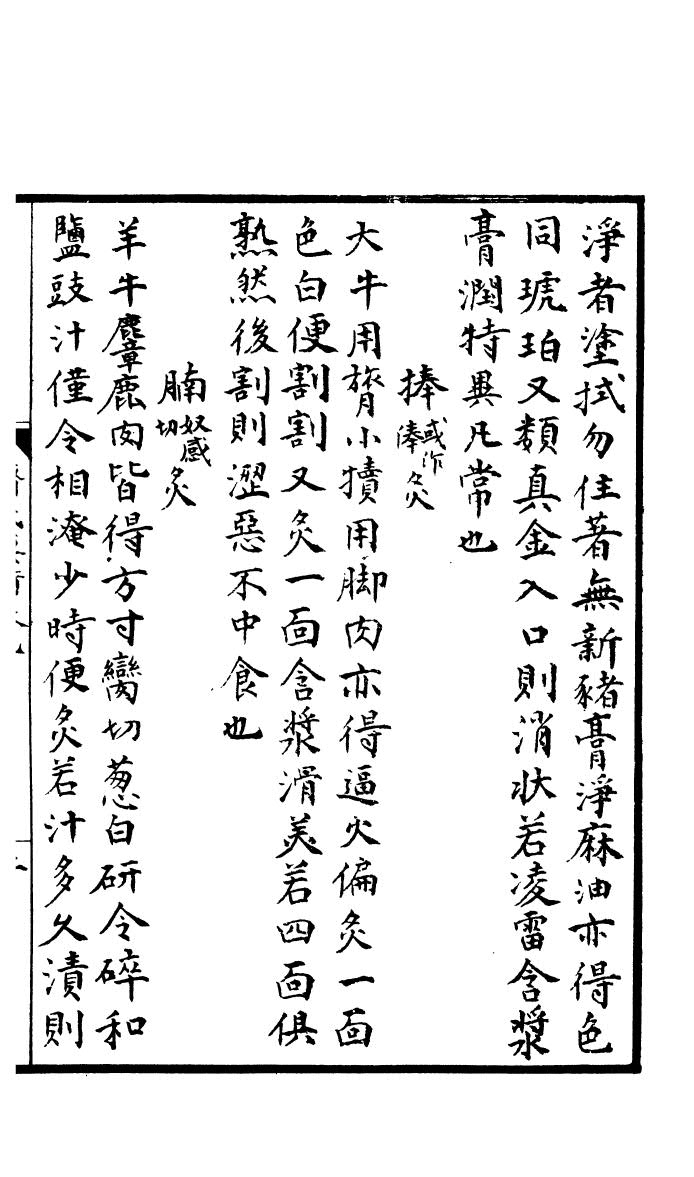 淨者塗拭勿住著無新豬膏淨麻油亦得色
同琥珀又類真金入口則消狀若凌雷含漿
膏潤特異凡常也
捧或作俸炙
大牛用膂小犢用脚肉亦得逼火偏炙一面
色白便割割又炙一面含漿滑美若四面俱
熟然後割則澀惡不中食也
腩奴感切炙
羊牛麞鹿肉皆得方寸臠切葱白研令碎和
鹽豉汁僅令相淹少時便炙若汁多久漬則